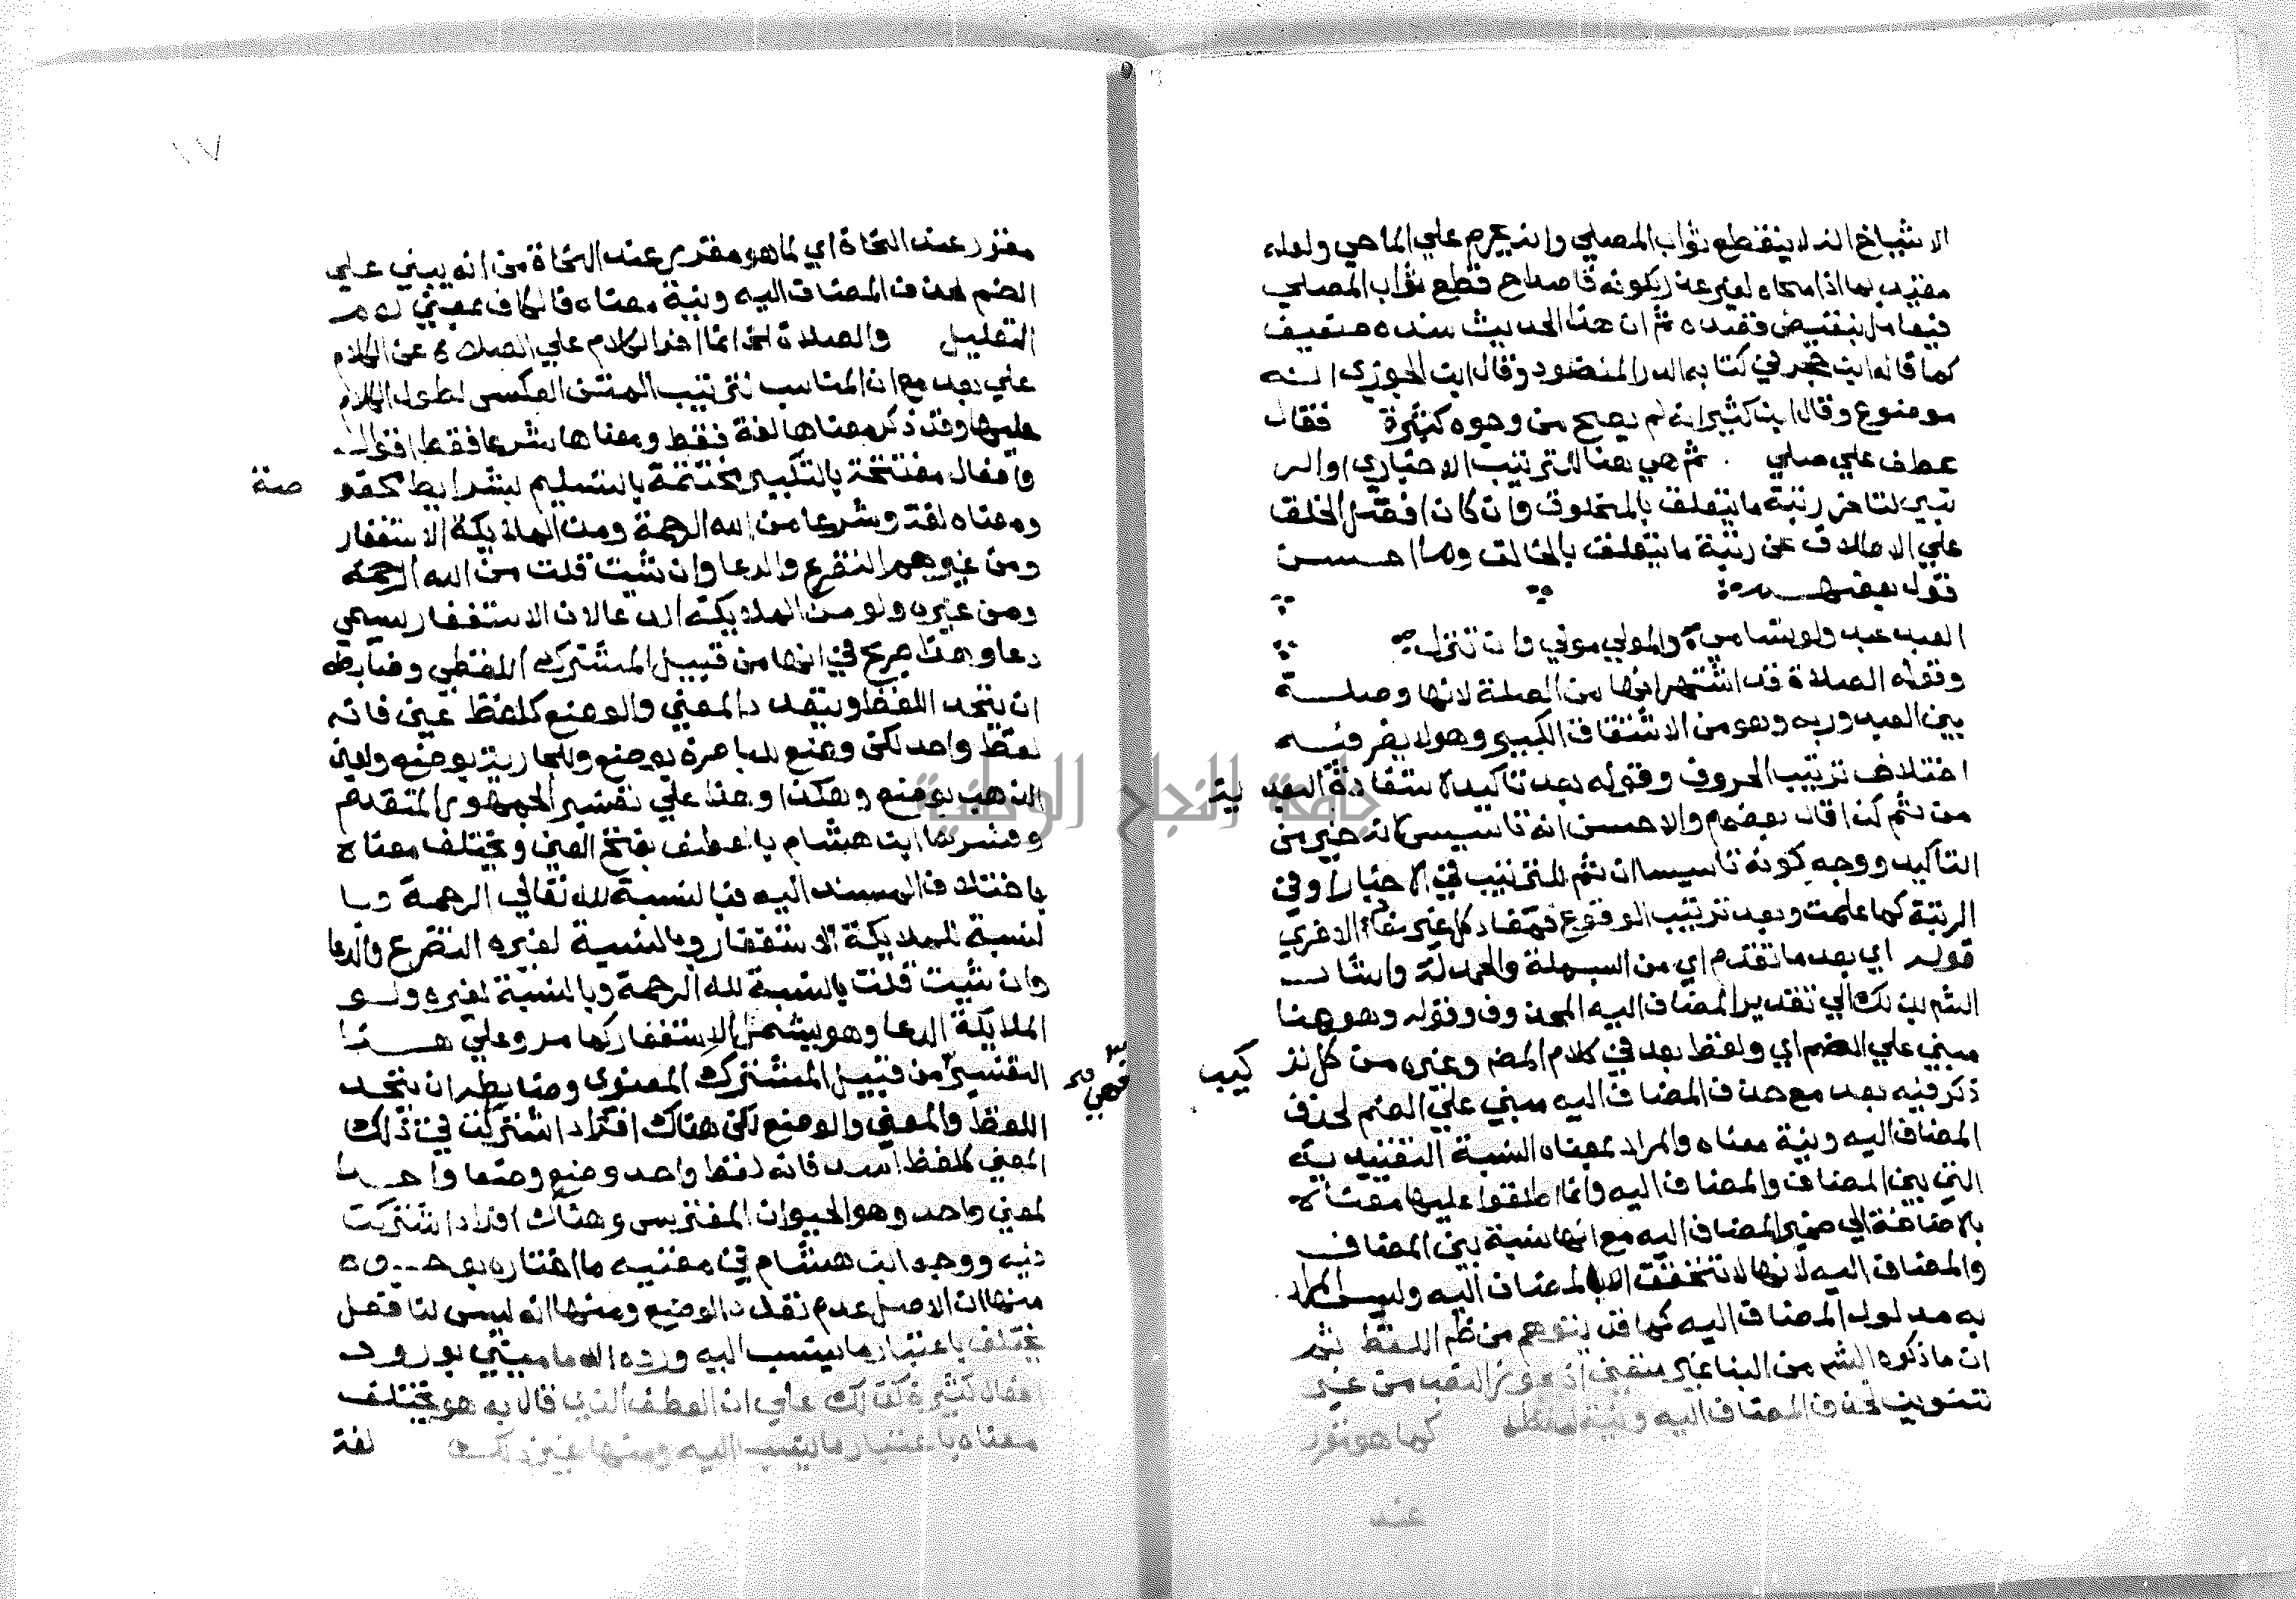 الاشياخ انه لا ينقطع ثواب المصلي وانه يحرم علي الماحي ولعله
مقيد بما اذا محاه لغير عذر ككونه قاصدا قطع ثواب المصلي
فيعامل بنقيض قصده ثم ان هذا الحديث سنده ضعيف
كما قاله ابن حجر في كتابه الدر المنضود وقال ابن الجوزي انه
موضوع وقال ابن كثير انه لم يصح من وجوه كثيرة فقال
عطف علي صلي ثم هي هنا للترتيب الاخباري او الر
تبي لتاخر رتبة ما يتعلق بالمخلوق وان كان افضل الخلق
علي الاطلاق عن رتبة ما يتعلق بالخالق وما احسن
قول بعضهم
العبد عبد ولو تسامي والمولي مولي وان تنزل
وقوله الصلاة قد اشتهر انها من الصلة لانها وصلة
بين العبد وربه وهو من الاشتقاق الكبير وهو لا يضر فيه
اختلاف ترتيب الحروف وقوله بعد تاكيد لاستفادة البعد ية
من ثم كذا قال بعضهم والاحسن انه تاسيس لانه خير من
التاكيد ووجه كونه تاسيسا ان ثم للترتيب في الاخبار او في
الرتبة كما علمت وبعد لترتيب الوقوع فمفاد كل غير مفاد الاخري
قوله اي بعد ما تقدم اي من البسملة والحمدلة واشار
الشم بذلك الي تقدير المضاف اليه المحذوف وقوله وهو هنا
مبني علي الضم اي ولفظ بعد في كلام المض وغيره من كل تر
كيب
ذكر فيه بعد مع حذف المضاف اليه مبني علي الضم لحذف
المضاف اليه ونية معناه والمراد بمعناه النسبة التقييدية
التي بين المضاف والمضاف اليه وانما اطلقوا عليها معناه
بالاضافة الي ضمير المضاف اليه مع انها نسبة بين المضاف
والمضاف اليه لانها لا تتحقق الا بالمضاف اليه وليس المراد
به مدلول المضاف اليه كما قد يتوهم من ظم اللفظ ثم
ان ما ذكره الشم من البنا غير متعين اذ يجوز النصب من غير
تنوين لحذف المضاف اليه ونية لفظه كما هو مقرر
عند
١٧
مقرر عند النحاة اي لما هو مقرر عند النحاة من انه يبني علي
الضم لحذف المضاف اليه ونية معناه فالكاف بمعني لام
التعليل والصلاة الخ انما اخر الكلام علي الصلاة عن الكلام
علي بعد مع ان المناسب لترتيب المتن العكس لطول الكلام
عليها وقد ذكر معناها لغة فقط ومعناها شرعا فقط اقوال
وافعال مفتتحة بالتكبير مختتمة بالتسليم بشرايط مخصو صة
ومعناه لغة وشرعا من الله الرحمة ومن الملايكة الاستغفار
ومن غيرهم التضرع والدعا وان شيت قلت من الله الرحمة
ومن غيره ولو من الملايكة الدعا لان الاستغفار يسمي
دعا وهذا صريح في انها من قبيل المشترك اللفظي وضابطه
ان يتحد اللفظ ويتعدد المعني والوضع كلفظ عين فانه
لفظ واحد لكن وضع للباصرة بوضع وللجارية بوضع ولعين
الذهب بوضع وهكذا وهذا علي تفسير الجمهور المتقدم
وفسرها ابن هشام بالعطف بفتح العين ويختلف معناه
باختلاف المسند اليه فبالنسبة لله تعالي الرحمة وبا
لنسبة للملايكة الاستغفار وبالنسبة لغيره التضرع والدعا
وان شيت قلت بالنسبة لله الرحمة وبالنسبة لغيره ولو
الملايكة الدعا وهو يشمل الاستغفار كما مر وعلي هذا
التفسير من قبيل المشترك المعنوي وضابطه ان يتحد
اللفظ والمعني والوضع لكن هناك افراد اشتركت في ذلك
المعني كلفظ اسد فانه لفظ واحد وضع وضعا واحدا
لمعني واحد وهو الحيوان المفترس وهناك افراد اشتركت
فيه ووجه ابن هشام في مغنيه ما اختاره بوجوه
منها ان الاصل عدم تعدد الوضع ومنها انه ليس لنا فعل
يختلف باعتبار ما ينسب اليه ورده الدماميني بورود
افعال كثيرة كذلك علي ان العطف الذي قال به هو يختلف
معناه باعتبار ما ينسب اليه
لغة